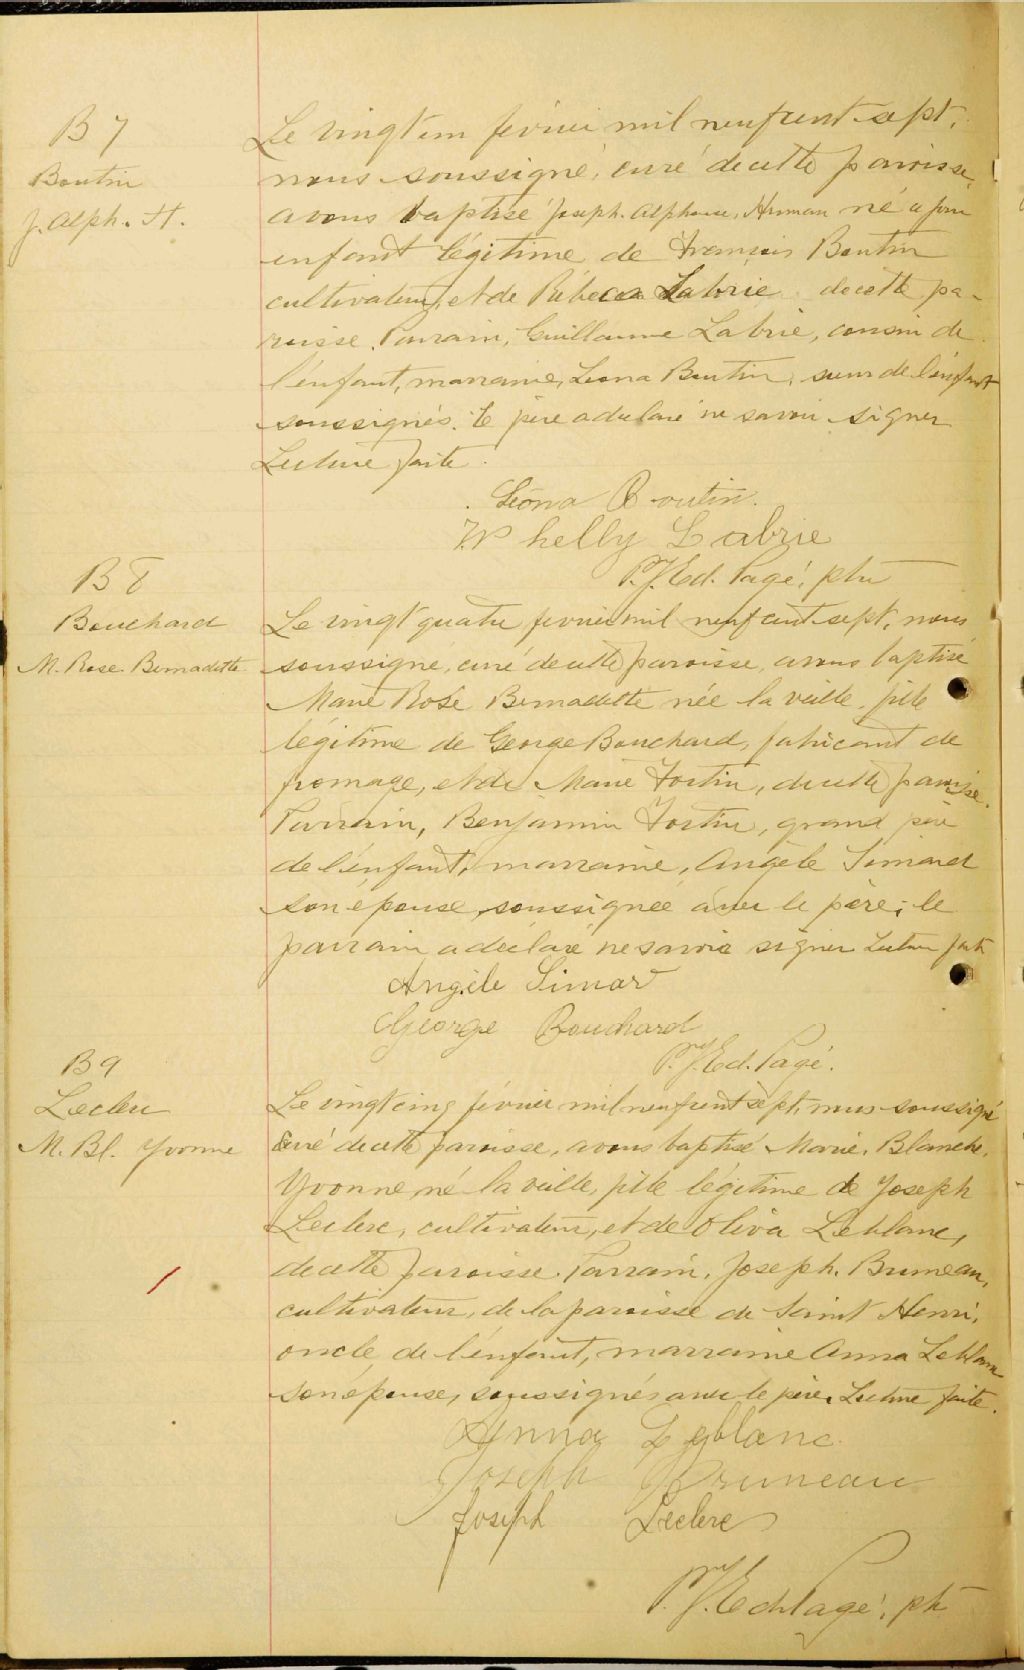 B 7
Boutin
J. Alph. H.
Le vingt un février mil neuf cent sept,
nous soussigné, curé de cette paroisse,
avons baptisé Joseph. Alphonse, Herman né ce jour
enfant légitime de François Boutin
cultivateur, et de Rébecca Labrie de cette pa-
roisse. Parrain, Guillaume Labrie, cousin de
l'enfant, marraine, Leona Boutin, sœur de l'enfant
soussignés. Le père a déclaré ne savoir signer
Lecture faite.
Léona Boutin.
Whelly Labrie
P. J. Ed. Pagé, ptre
B 8
Bouchard
M. Rose Bernadette
Le vingt quatre février mil neuf cent sept, nous
soussigné, curé de cette paroisse, avons baptisé
Marie Rose Bernadette née la veille, fille
légitime de George Bouchard, fabricant de
fromage, et de Marie Fortin, de cette paroisse.
Parrain, Benjamin Fortin, grand père
de l'enfant, marraine, Angèle Simard
son épouse, soussignée avec le père; le
parrain a déclaré ne savoir signer Lecture faite
Angèle Simard
George Bouchard
P. J. Ed. Pagé.
B 9
Leclerc
M. Bl. Yvonne
Le vingt cinq février mil neuf cent sept, nous soussigné
curé de cette paroisse, avons baptisé Marie, Blanche,
Yvonne, né la veille, fille légitime de Joseph
Leclerc, cultivateur, et de Oliva Leblanc,
de cette paroisse. Parrain, Joseph. Bruneau,
cultivateur, de la paroisse de Saint Henri,
oncle de l'enfant, marraine Anna Leblanc
son épouse, soussignés avec le père. Lecture faite.
Anna Leblanc
Joseph Bruneau
Joseph Leclerc
P. J. Ed. Pagé, ptr